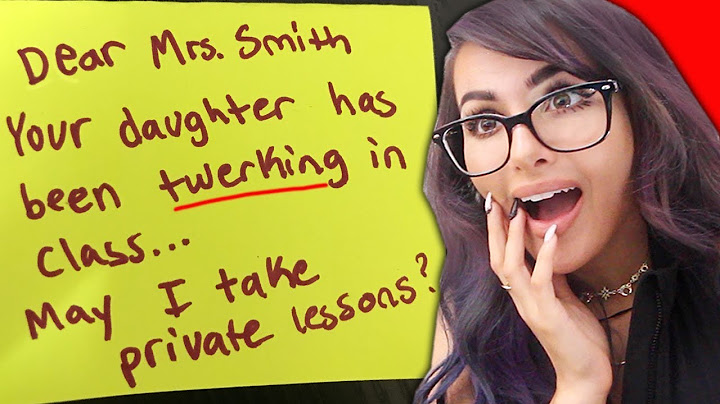 Dear Mrs. Smith
Your daughter has
been twerking in
class...
May I take
private lessons?